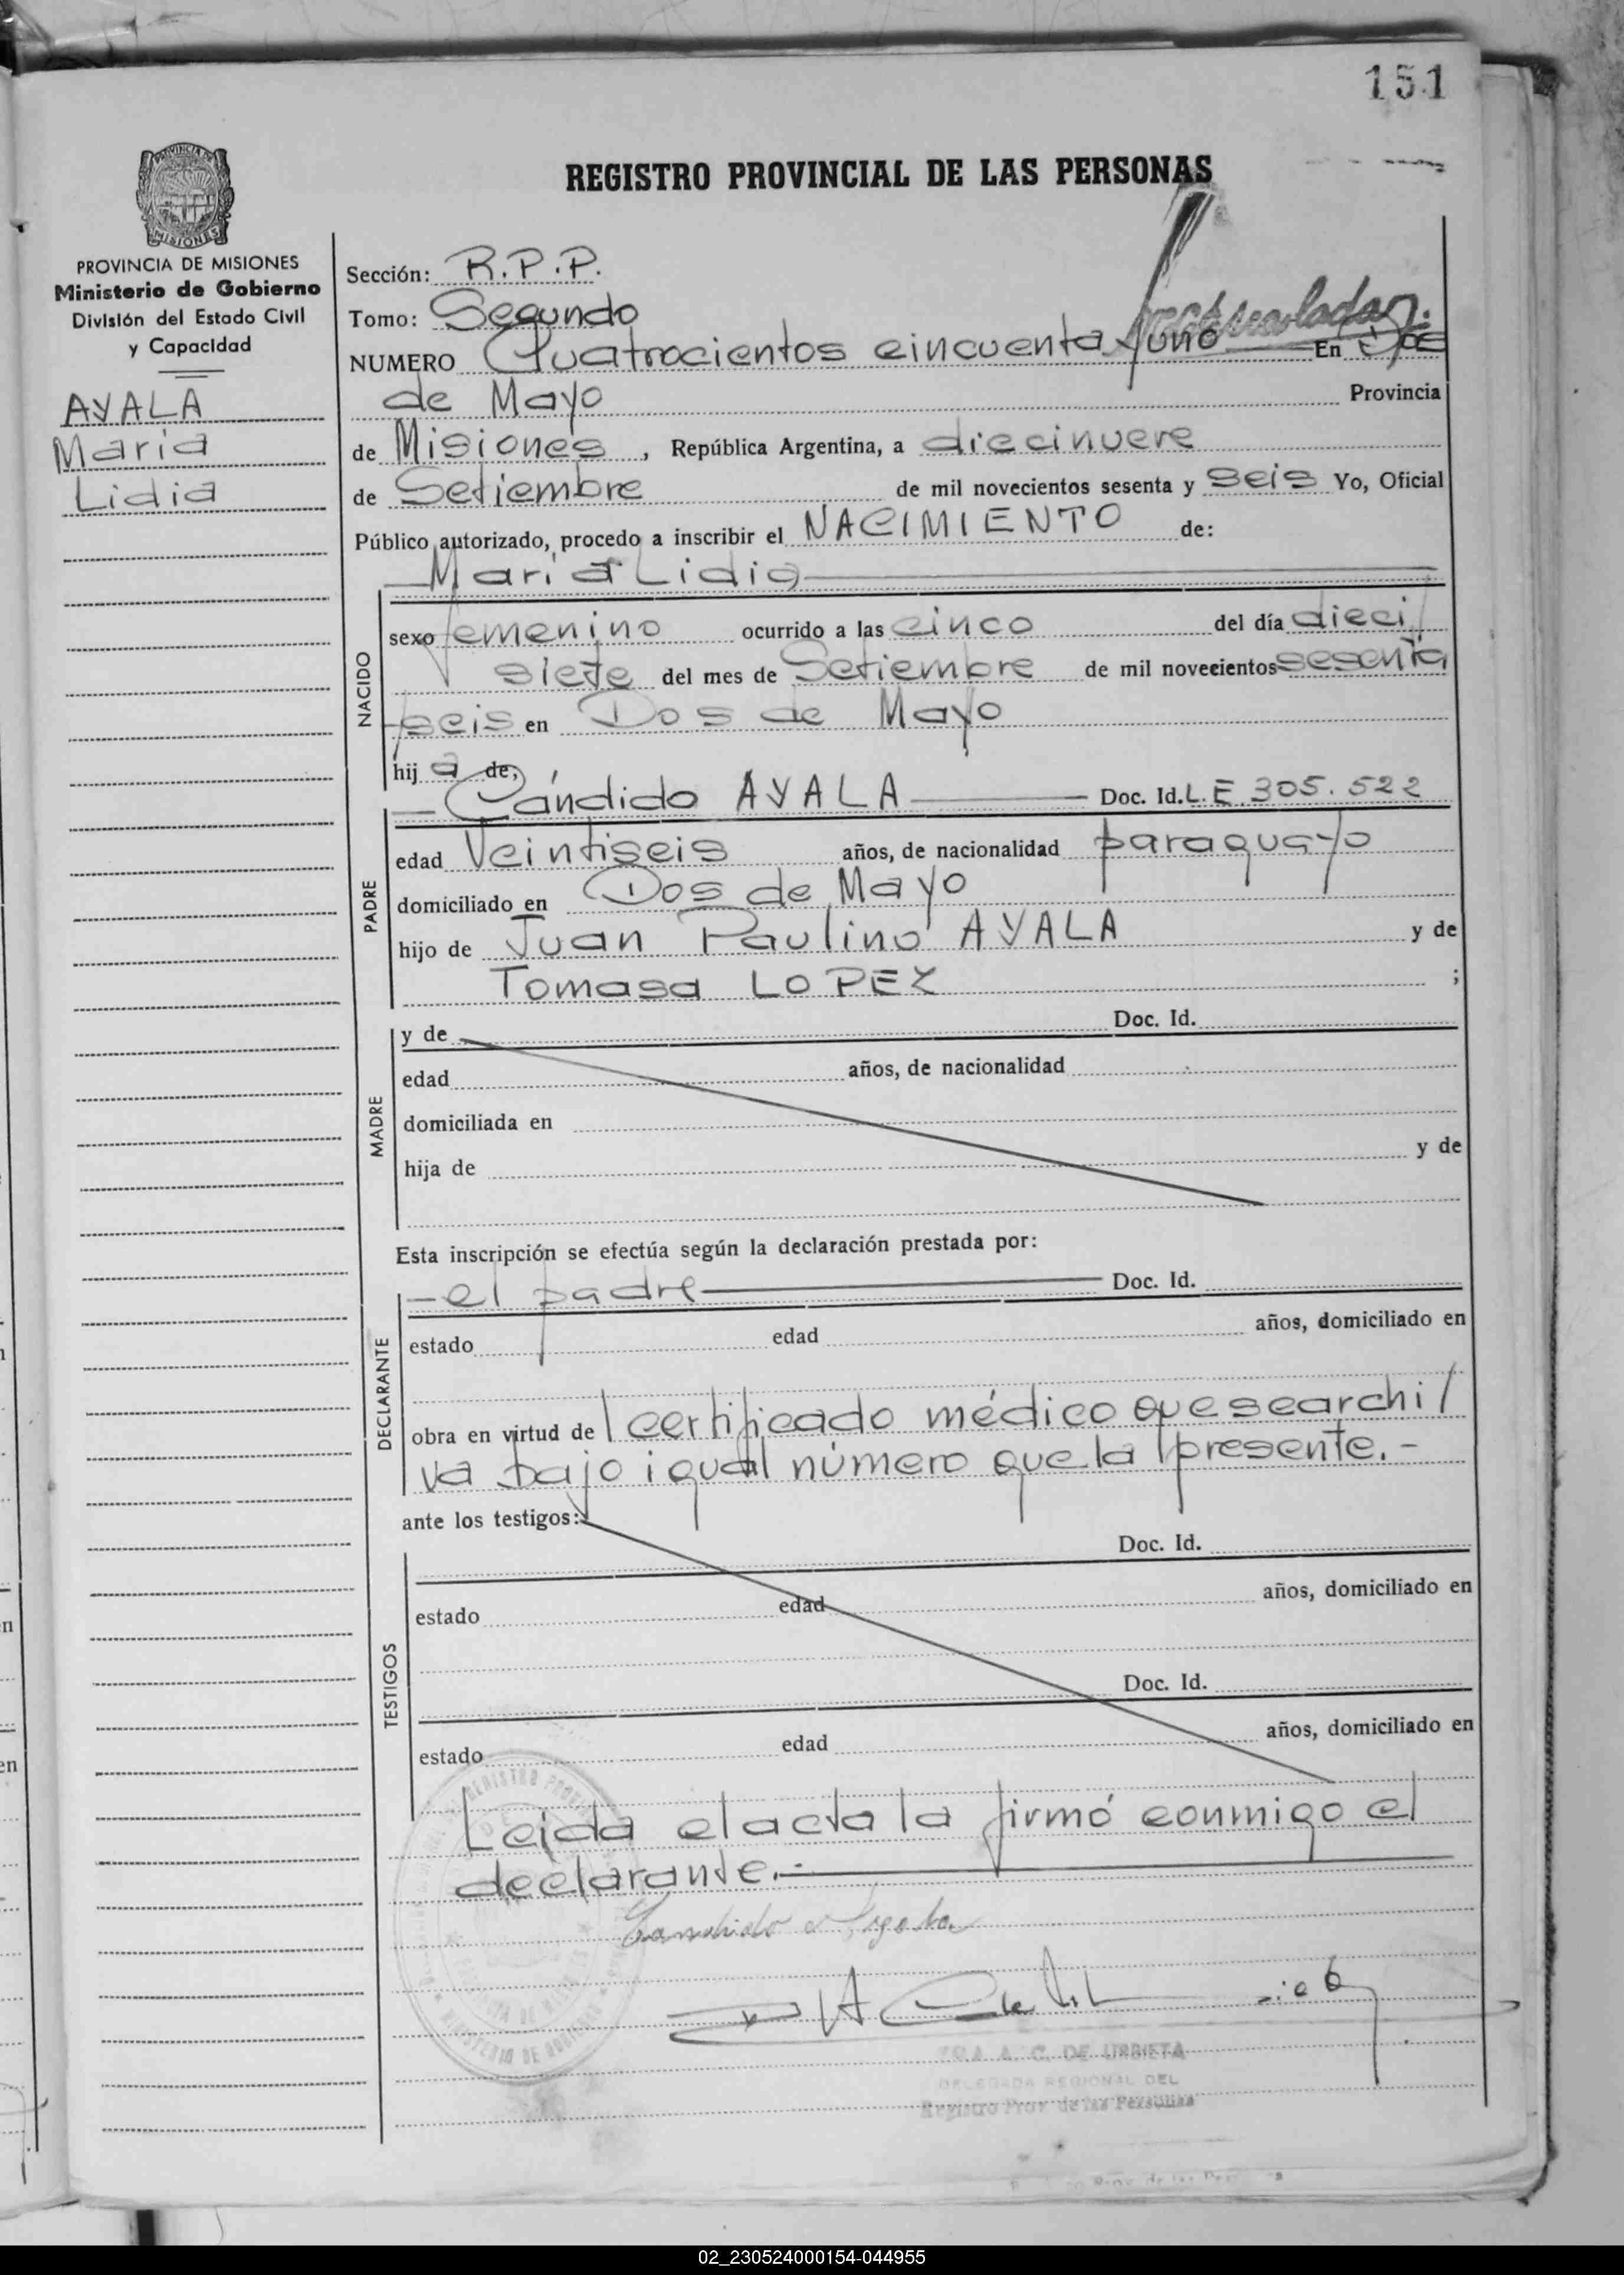 151
REGISTRO PROVINCIAL DE LAS PERSONAS
PROVINCIA DE MISIONES
Ministerio de Gobierno
División del Estado Civil
y Capacidad
AYALA
Maria
Lidia
Sección: R.P.P.
Tomo: Segundo
NUMERO Cuatrocientos cincuenta y uno En Dos
de Mayo Provincia
de Misiones, República Argentina, a diecinueve
de Setiembre de mil novecientos sesenta y seis Yo, Oficial
Público autorizado, procedo a inscribir el NACIMIENTO de:
Maria Lidia
NACIDO
sexo femenino ocurrido a las cinco del día dieci/
siete del mes de Setiembre de mil novecientos sesenta
y seis en Dos de Mayo
hija de,
Cándido AYALA Doc. Id. L.E. 305.522
PADRE
edad Veintiseis años, de nacionalidad paraguayo
domiciliado en Dos de Mayo
hijo de Juan Paulino AYALA y de
Tomasa LOPEZ ;
MADRE
y de Doc. Id.
edad años, de nacionalidad
domiciliada en
hija de y de
Esta inscripción se efectúa según la declaración prestada por:
-el padre Doc. Id.
DECLARANTE
estado edad años, domiciliado en
obra en virtud del certificado médico que se archi/
va bajo igual número que la presente.-
ante los testigos:
Doc. Id.
TESTIGOS
estado edad años, domiciliado en
Doc. Id.
estado edad años, domiciliado en
Leida el acta la firmó conmigo el
declarante.-
Candido Ayala
SRA. A. C. DE URBIETA
DELEGADA REGIONAL DEL
Registro Prov. de las Personas
02_230524000154-044955